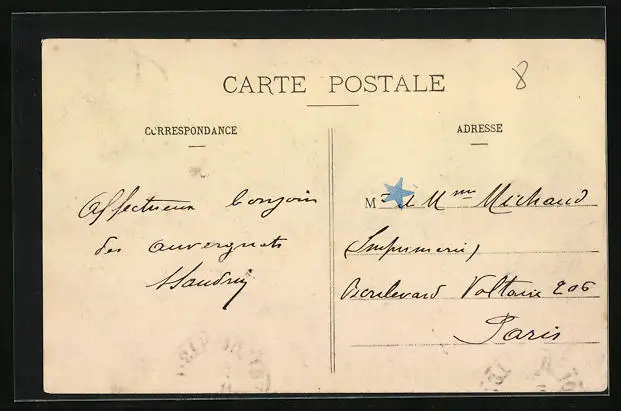 8
CARTE POSTALE
CORRESPONDANCE
Affectueux bonjour
des auvergnats
ADRESSE
Mr et Mme Michaud
(Imprimerie)
Boulevard Voltaire 206
Paris